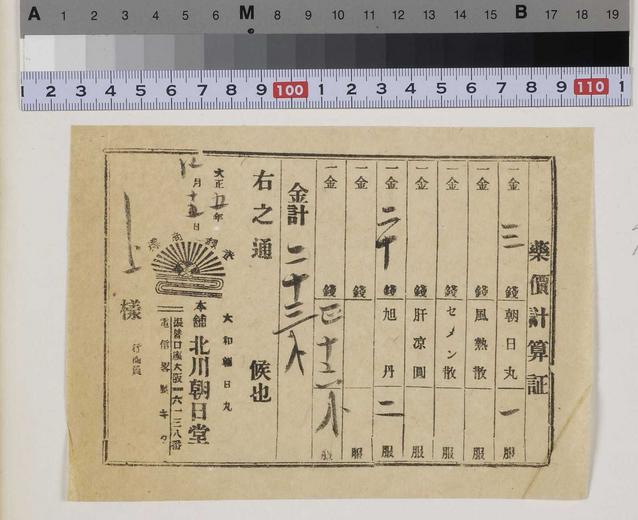 A 1 2 3 4 5 6 M 8 9 10 11 12 13 14 15 B 17 18 19
1 2 3 4 5 6 7 8 9 100 1 2 3 4 5 6 7 8 9 110 1
藥價計算証
一金 三 錢 朝日丸 一 服
一金 錢 風熱散 服
一金 錢 セメン散 服
一金 錢 肝凉圓 服
一金 二十 錢 旭丹 二 服
一金 錢 服
一金 錢 服
金計 二十三
右之通 候也
大正五年
月十五日
大和 日丸
本舗 北川朝日堂
振替口座大阪一六一三八番
樣
行商員